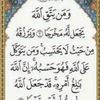 وَمَن يَتَّقِ ٱللَّهَ
يَجْعَل لَّهُۥ مَخْرَجًا ۝ وَيَرْزُقْهُ
مِنْ حَيْثُ لَا يَحْتَسِبُ ۚ وَمَن يَتَوَكَّلْ
عَلَى ٱللَّهِ فَهُوَ حَسْبُهُۥٓ ۚ إِنَّ ٱللَّهَ
بَٰلِغُ أَمْرِهِۦ ۚ قَدْ جَعَلَ ٱللَّهُ